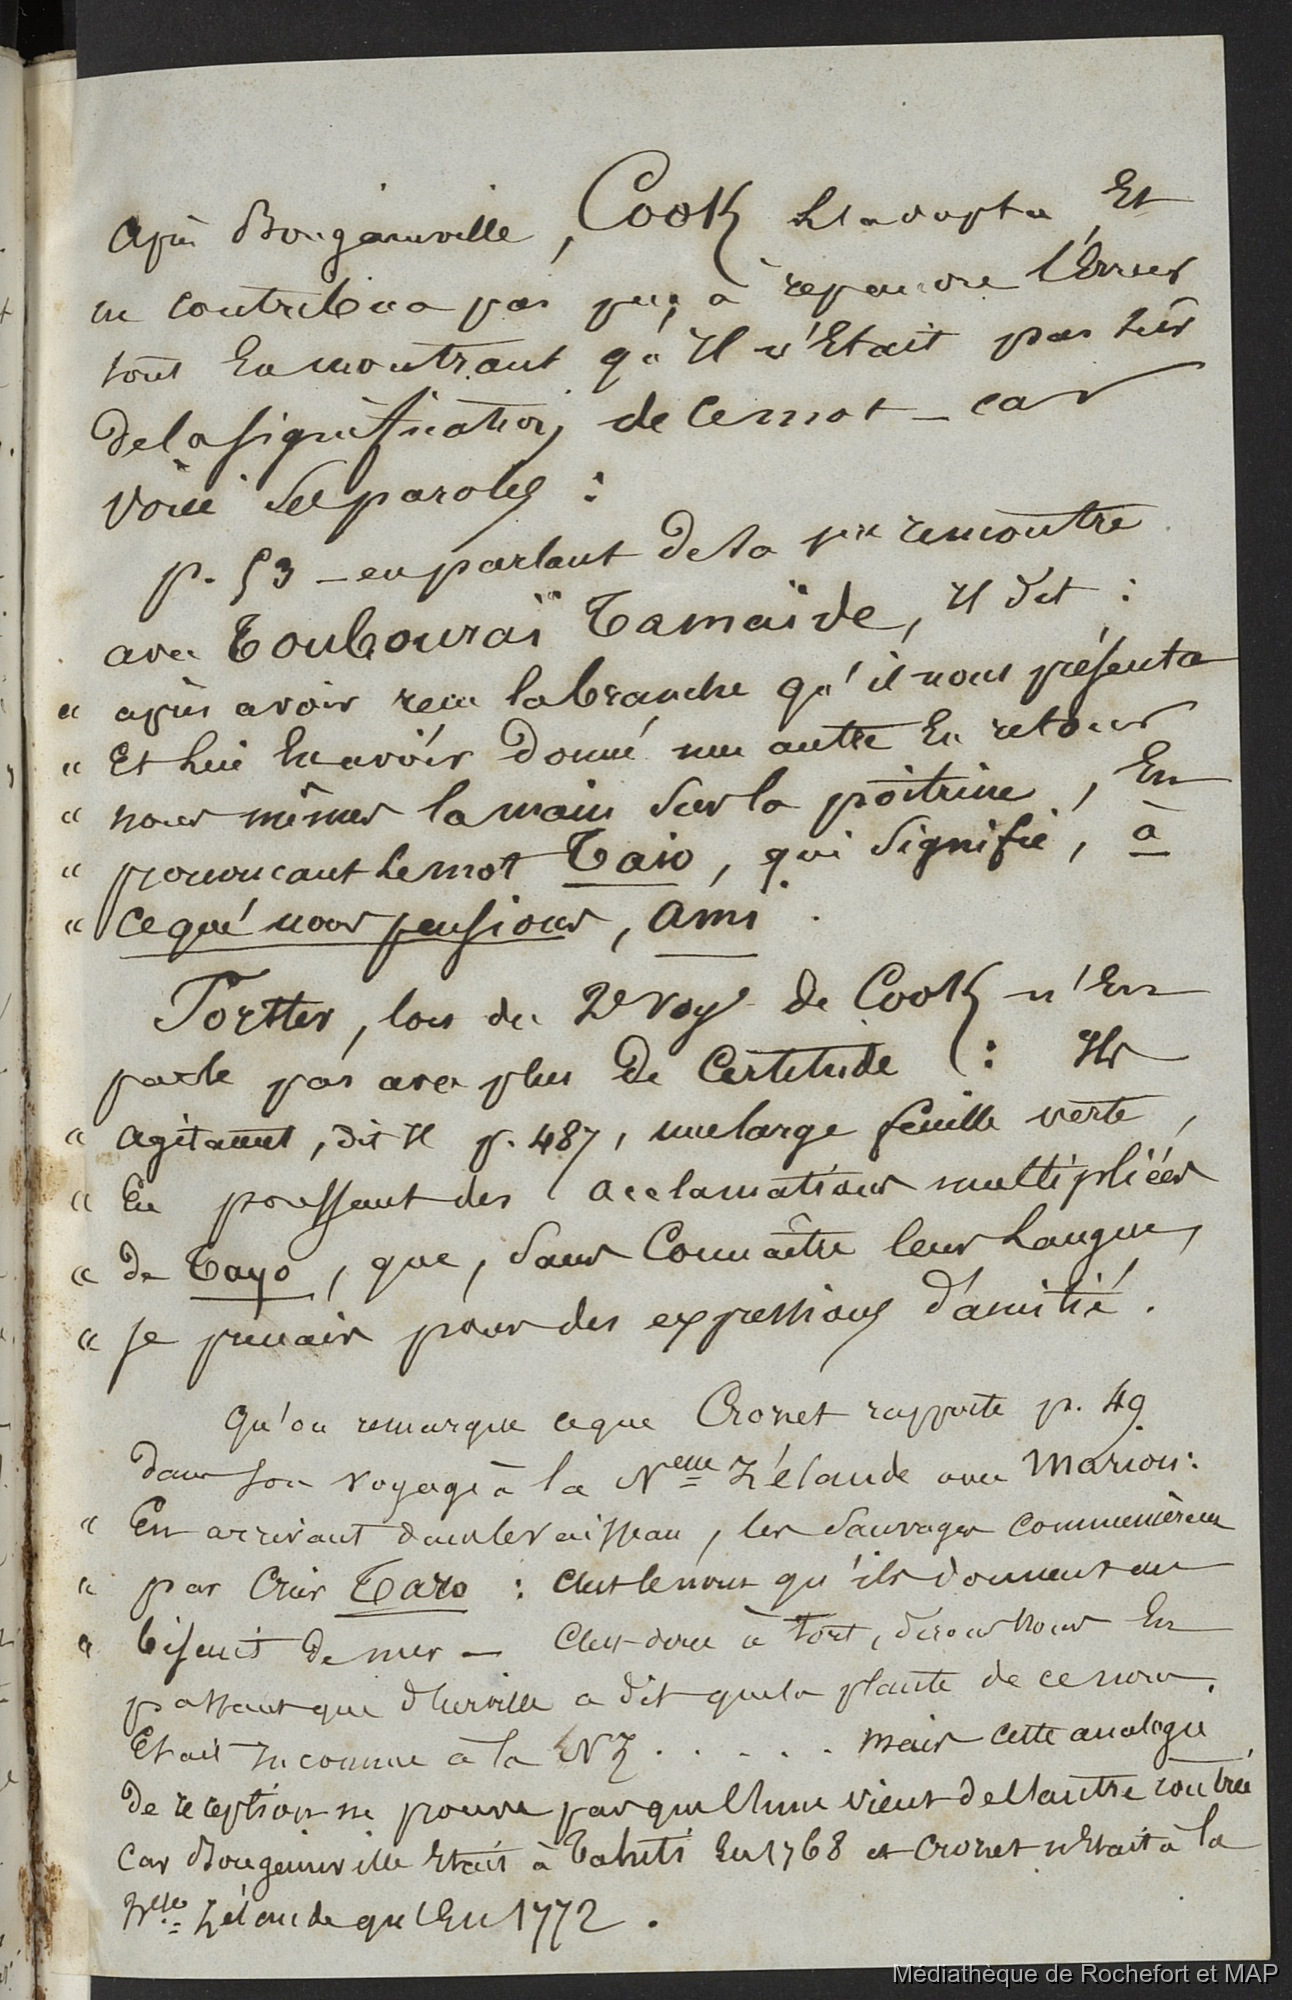 après Bougainville, Cook l'adopta, Et
ne contribua pas peu, à repandre l'Erreur
tout En montrant qu'Il n'Etait pas sûr
de la signification, de ce mot _ car
voici ses paroles :
p. 53 _ en parlant de la 1ere rencontre
avec Toubouraï Tamaïde, Il dit :
" après avoir reçu la branche qu'il nous présenta
" Et lui En avoir donné une autre En retour
" nous mîmes la main sur la poitrine, En
" prononçant le mot Taio, qui signifie, à
" ce que nous pensions, ami.
Forster, lors du 2e voy. de Cook n'En
parle pas avec plus de Certitude : Ils
" agitaient, dit Il p. 487, une large feuille verte,
" En poussant des acclamations multipliées
" de Tayo, que, sans Connaître leur Langue,
" je prenais pour des expressions d'amitié.
Qu'on remarque ce que Crozet rapporte p. 49
dans son voyage à la Nelle Zélande avec Marion :
" En arrivant dans le vaisseau, les Sauvages commencèrent
" par Crier Taro : c'est le nom qu'ils donnent au
" biscuit de mer _ C'est donc à tort, disons nous En
passant que d'Urville a dit que la plante de ce nom,
Etait Inconnue à la NZ . . . . . mais cette analogie
de reception ne prouve pas que l'une vient de l'autre contrée
car Bougainville Etait à Tahiti En 1768 et Crozet n'Etait à la
Nelle Zélande qu'En 1772.
Médiathèque de Rochefort et MAP